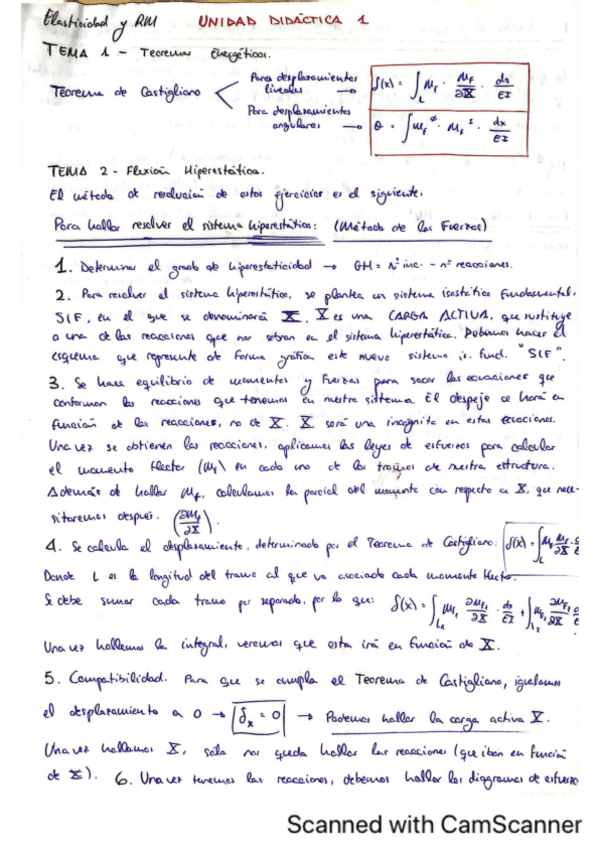 Elasticidad y RIM UNIDAD DIDÁCTICA 1
TEMA 1 - Teoremas Energéticos.
Teorema de Castigliano
Para desplazamientos lineales → δ(x) = ∫_L M_f · M_F/∂X · ds/EI
Para desplazamientos angulares → θ = ∫ M_f^φ · M_f^I · dx/EI
TEMA 2 - Flexión Hiperestática.
El método de resolución de estos ejercicios es el siguiente.
Para hallar resolver el sistema hiperestático: (Método de las Fuerzas)
1. Determinar el grado de hiperestaticidad → GH = Nº inc. - nº reacciones.
2. Para resolver el sistema hiperestático, se plantea un sistema isostático fundamental,
SIF, en el que se denominará X. X es una CARGA ACTIVA, que sustituye
a una de las reacciones que nos sobran en el sistema hiperestático. Debemos hacer el
esquema que represente de forma gráfica este nuevo sistema is. fund. "SIF".
3. Se hace equilibrio de momentos y fuerzas para sacar las ecuaciones que
conforman las reacciones que tenemos en nuestra sistema. El despeje se hará en
función de las reacciones, no de X. X será una incógnita en estas ecuaciones.
Una vez se obtienen las reacciones, aplicamos las leyes de esfuerzos para calcular
el momento flector (Mf) en cada uno de los tramos de nuestra estructura.
Además de hallar Mf, calculamos la parcial del momento con respecto a X, que nece-
sitaremos después. (∂Mf/∂X).
4. Se calcula el desplazamiento, determinado por el Teorema de Castigliano: δ(x) = ∫_L Mf Mf/∂X ·
Donde L es la longitud del tramo al que va asociado cada momento flector.
Se debe sumar cada tramo por separado, por lo que: δ(x) = ∫_L1 Mf1 ∂Mf1/∂X · ds/EI + ∫_L2 Mf2 ∂Mf2/∂X
Una vez hallemos la integral, veremos que esta irá en función de X.
5. Compatibilidad. Para que se cumpla el Teorema de Castigliano, igualamos
el desplazamiento a 0 → δx = 0 → Podemos hallar la carga activa X.
Una vez hallamos X, sólo nos queda hallar las reacciones (que iban en función
de X). 6. Una vez tenemos las reacciones, debemos hallar los diagramas de esfuerzo
Scanned with CamScanner